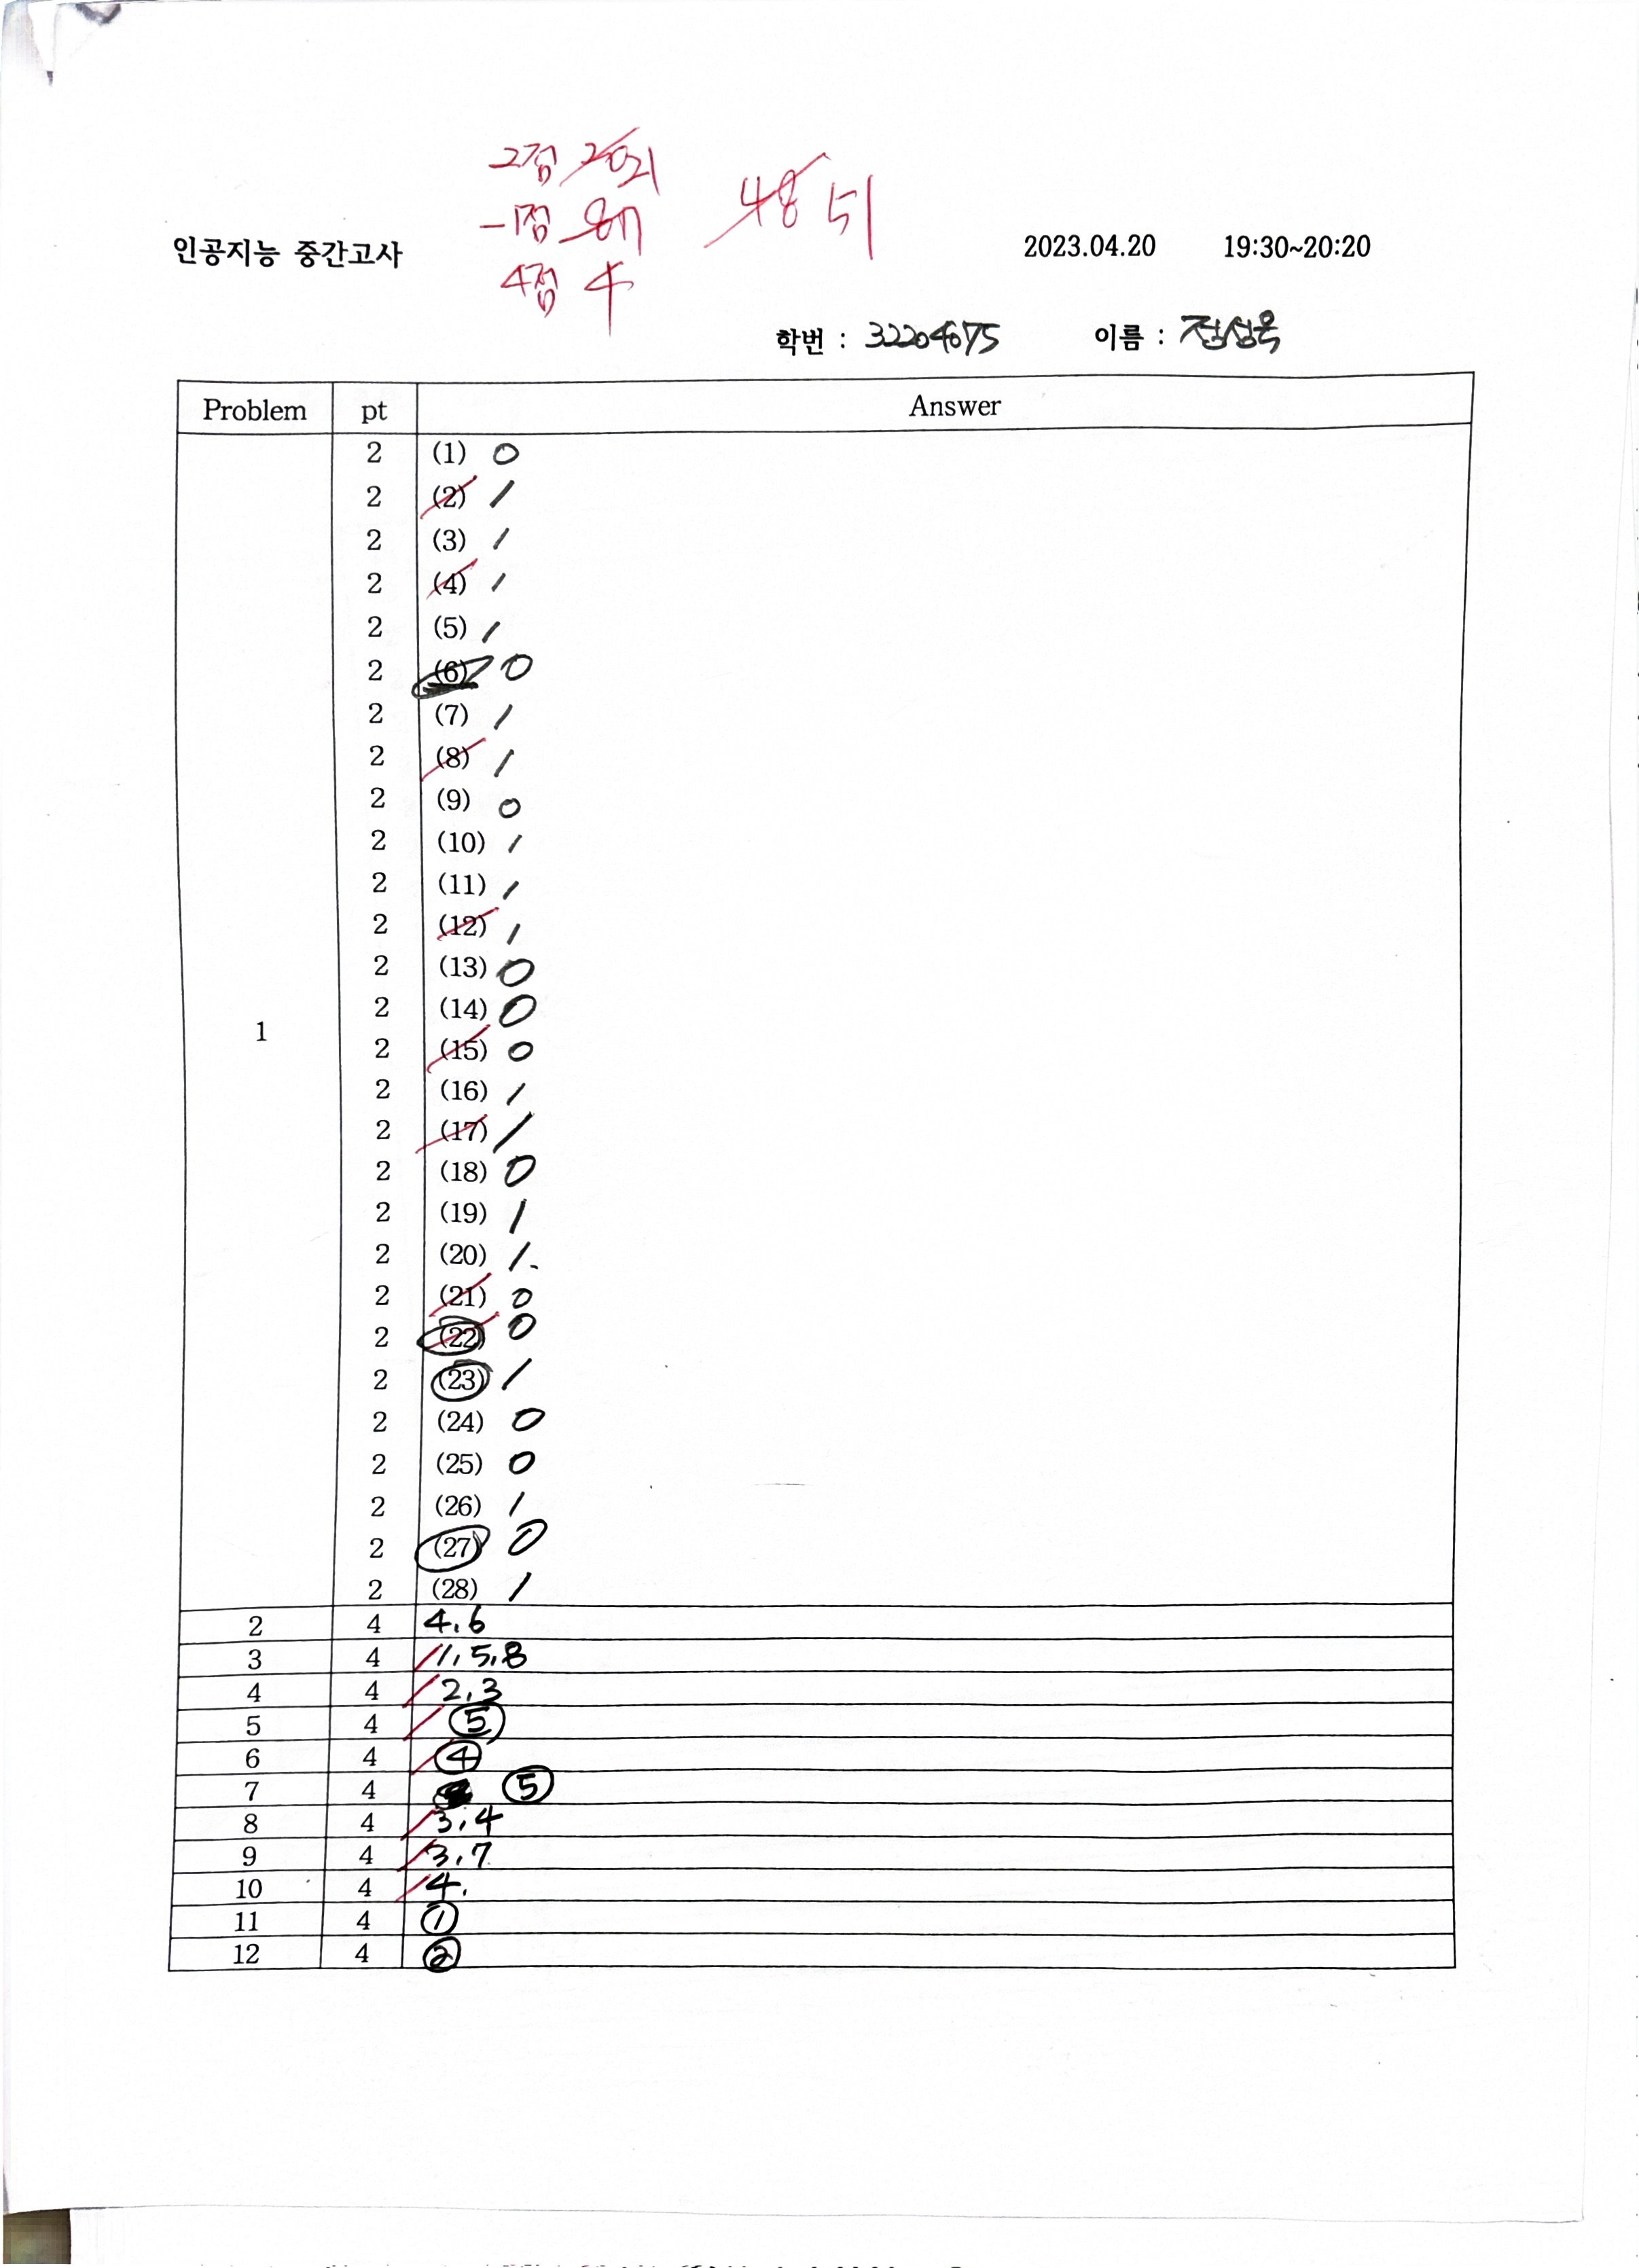 2점 20 21
-1점 8 7
4점 4
48 51
인공지능 중간고사 2023.04.20 19:30~20:20
학번 : 32204675 이름 :
Problem pt Answer
2 (1) 0
2 (2) 1
2 (3) 1
2 (4) 1
2 (5) 1
2 (6) 0
2 (7) 1
2 (8) 1
2 (9) 0
2 (10) 1
2 (11) 1
2 (12) 1
2 (13) 0
2 (14) 0
1
2 (15) 0
2 (16) 1
2 (17) 1
2 (18) 0
2 (19) 1
2 (20) 1.
2 (21) 0
2 (22) 0
2 (23) 1
2 (24) 0
2 (25) 0
2 (26) 1
2 (27) 0
2 (28) 1
2 4 4,6
3 4 1,5,8
4 4 2,3
5 4 ⑤
6 4 ④
7 4 ⑤
8 4 3,4
9 4 3,7
10 4 4.
11 4 ①
12 4 ②